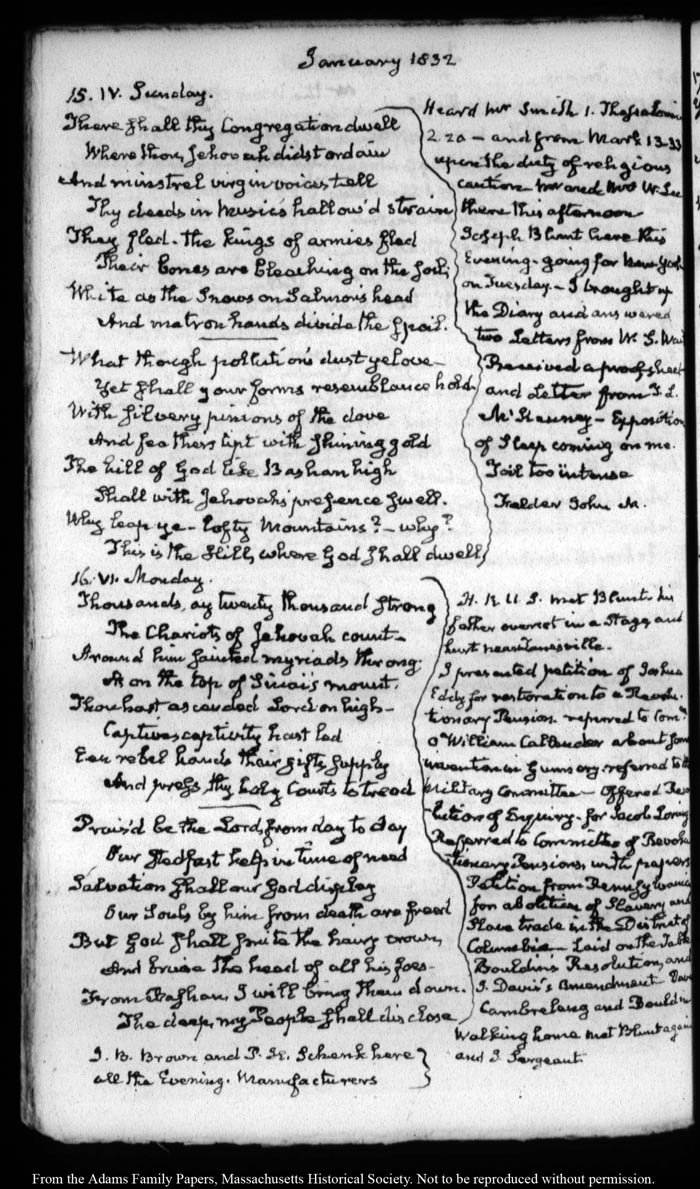 January 1832
15. IV. Sunday.
There shall thy Congregation dwell
Where thou, Jehovah didst ordain
And minstrel virgin voices tell
Thy deeds in Musics hallow'd strain
They fled - the Kings of armies fled
Their bones are bleaching on the soil;
White as the Snows on Salmon's head
And matron hands divide the spoil.
What though pollution's dust ye love -
Yet shall your forms resemblance hold.
With silvery pinions of the dove
And feathers tipt with shining gold
The hill of God like Bashan high
Shall with Jehovahs' presence swell.
Why leap ye - lofty Mountains? - why?
This is the Hill, where God shall dwell
Heard Mr Smith 1. Thessaloni
2. 20 - and from Mark 13.33
upon the duty of religious
caution Mr and Mrs W. Lee
there this afternoon
Joseph Blunt here this
Evening - going for New York
on Tuesday. - I brought up
the Diary and answered
two Letters from W. S. Wait
Received a proof sheet
and Letter from
Exposition
of Sleep coming on me.
Toil too intense
Felder John M.
16. VI. Monday.
Thousands, ay twenty thousand strong
The Chariots of Jehovah count -
Around him sainted myriads throng.
As on the top of Sinai's mount.
Thou hast ascended Lord on high -
Captive captivity hast led
Even rebel hands their gifts supply
And press, thy holy Courts to tread
Prais'd be the Lord, from day to day
Our stedfast help in time of need
Salvation shall our God display
Our Souls by him from death are freed
But God shall smite the hairy crown,
And bruise the head of all his foes -
From Bashan, I will bring them down.
The deep, my People shall disclose
J. B. Brown and P. H. Schenk here
all the Evening. Manufacturers
H. R. U. S. met Blunt. his
father overset in a Stage, and
hurt near
I presented petition of Joshua
Eddy for restoration to a Revolu-
tionary Pension. referred to Comee
of William Callender about some
invention in Gunnery. referred to the
Military Committee - Offered Reso-
lution of Enquiry - for Jacob Loring
Referred to Committee of Revolu
tionary Pensions, with papers
Petition from Pennsylvania
for abolition of Slavery and
Slave trade in the District of
Columbia - Laid on the Table
Bouldin's Resolution, and
J. Davis's Amendment
Cambreleng and Bouldin
Walking home met Blunt again
and J. Sergeant.
From the Adams Family Papers, Massachusetts Historical Society. Not to be reproduced without permission.